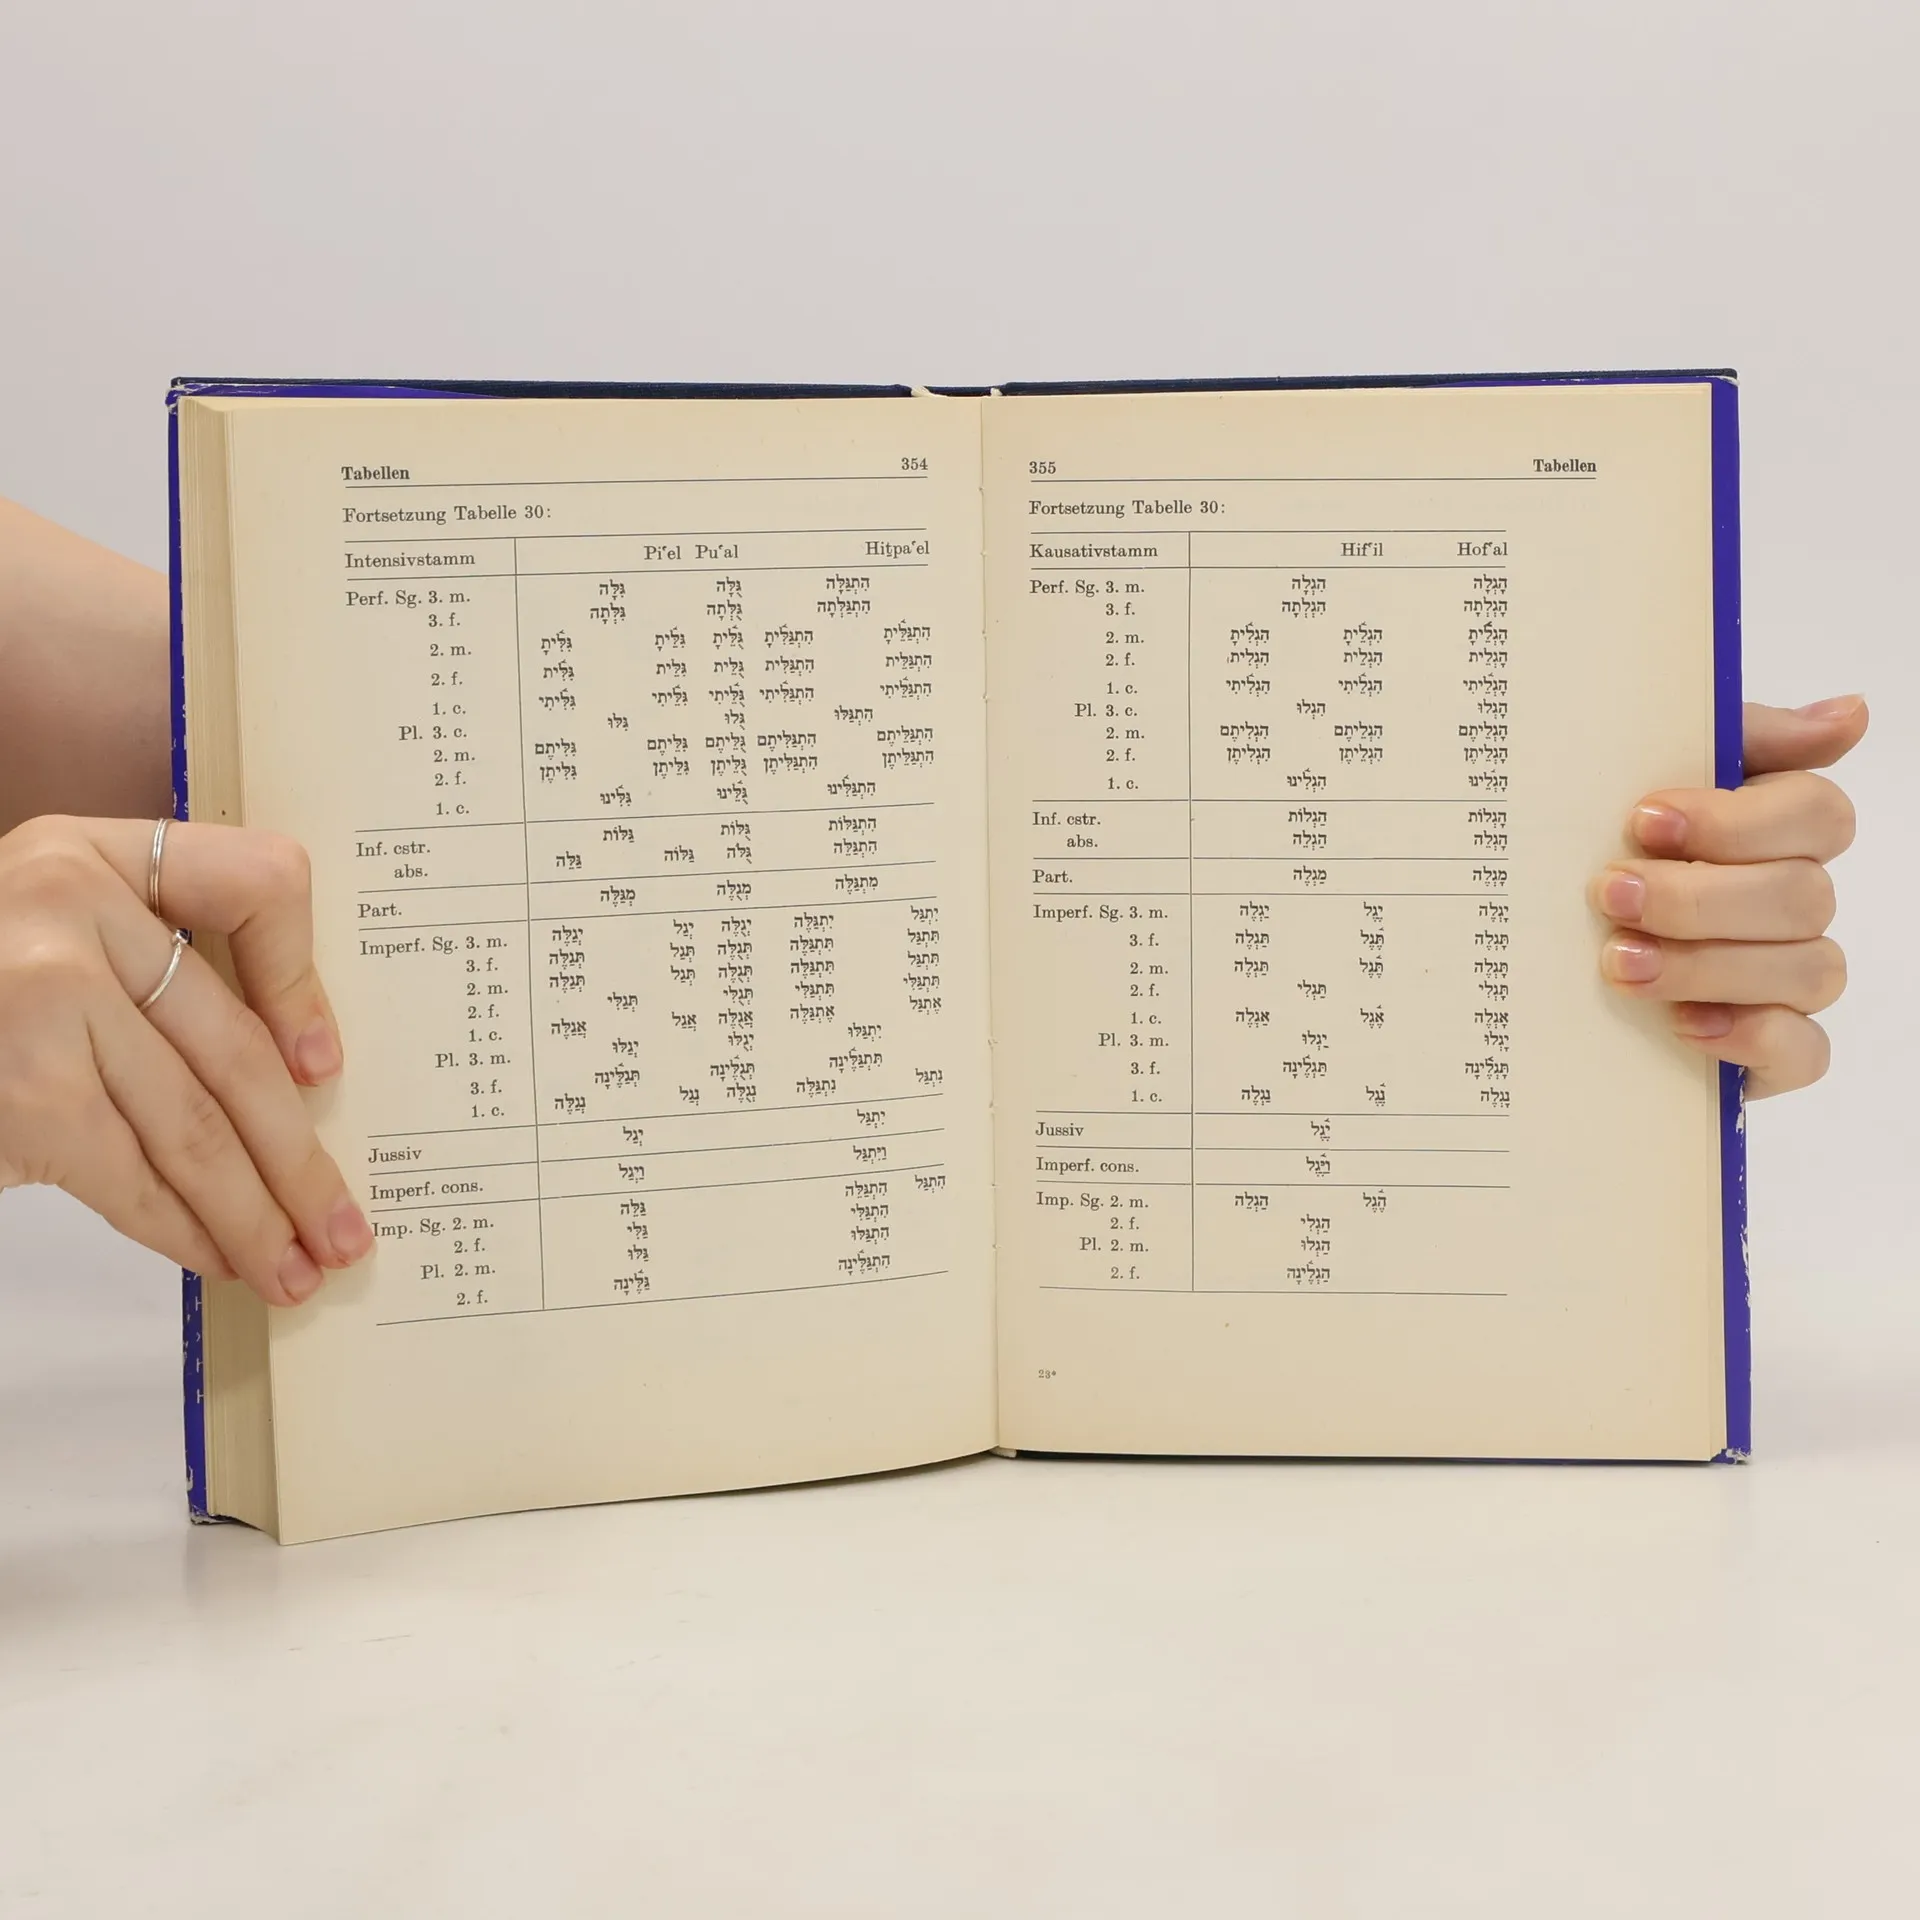 Tabellen 354
Fortsetzung Tabelle 30:
Intensivstamm Piʿel Puʿal Hiṯpaʿel
Perf. Sg. 3. m. גִּלָּה גֻּלָּה הִתְגַּלָּה
3. f. גִּלְּתָה גֻּלְּתָה הִתְגַּלְּתָה
2. m. גִּלִּ֫יתָ גִּלֵּ֫יתָ גֻּלֵּ֫יתָ הִתְגַּלִּ֫יתָ הִתְגַּלֵּ֫יתָ
2. f. גִּלִּית גִּלֵּית גֻּלֵּית הִתְגַּלִּית הִתְגַּלֵּית
1. c. גִּלִּ֫יתִי גִּלֵּ֫יתִי גֻּלֵּ֫יתִי הִתְגַּלִּ֫יתִי הִתְגַּלֵּ֫יתִי
Pl. 3. c. גִּלּוּ גֻּלּוּ הִתְגַּלּוּ
2. m. גִּלִּיתֶם גִּלֵּיתֶם גֻּלֵּיתֶם הִתְגַּלִּיתֶם הִתְגַּלֵּיתֶם
2. f. גִּלִּיתֶן גִּלֵּיתֶן גֻּלֵּיתֶן הִתְגַּלִּיתֶן הִתְגַּלֵּיתֶן
1. c. גִּלִּ֫ינוּ גֻּלֵּ֫ינוּ הִתְגַּלִּ֫ינוּ
Inf. cstr. גַּלּוֹת גֻּלּוֹת הִתְגַּלּוֹת
abs. גַּלֵּה גַּלּוֹה גֻּלֹּה הִתְגַּלֵּה
Part. מְגַלֶּה מְגֻלֶּה מִתְגַּלֶּה
Imperf. Sg. 3. m. יְגַלֶּה יְגַל יְגֻלֶּה יִתְגַּלֶּה יִתְגַּל
3. f. תְּגַלֶּה תְּגַל תְּגֻלֶּה תִּתְגַּלֶּה תִּתְגַּל
2. m. תְּגַלֶּה תְּגַל תְּגֻלֶּה תִּתְגַּלֶּה תִּתְגַּל
2. f. תְּגַלִּי תְּגֻלִּי תִּתְגַּלִּי תִּתְגַּלִּי
1. c. אֲגַלֶּה אֲגַל אֲגֻלֶּה אֶתְגַּלֶּה אֶתְגַּל
Pl. 3. m. יְגַלּוּ יְגֻלּוּ יִתְגַּלּוּ
3. f. תְּגַלֶּ֫ינָה תְּגֻלֶּ֫ינָה תִּתְגַּלֶּ֫ינָה
1. c. נְגַלֶּה נְגַל נְגֻלֶּה נִתְגַּלֶּה נִתְגַּל
Jussiv יְגַל יִתְגַּל
Imperf. cons. וַיְגַל וַיִּתְגַּל
Imp. Sg. 2. m. גַּלֵּה הִתְגַּלֵּה הִתְגַּל
2. f. גַּלִּי הִתְגַּלִּי
Pl. 2. m. גַּלּוּ הִתְגַּלּוּ
2. f. גַּלֶּ֫ינָה הִתְגַּלֶּ֫ינָה
355 Tabellen
Fortsetzung Tabelle 30:
Kausativstamm Hifʿil Hofʿal
Perf. Sg. 3. m. הִגְלָה הָגְלָה
3. f. הִגְלְתָה הָגְלְתָה
2. m. הִגְלִ֫יתָ הִגְלֵ֫יתָ הָגְלֵ֫יתָ
2. f. הִגְלִית הִגְלֵית הָגְלֵית
1. c. הִגְלִ֫יתִי הִגְלֵ֫יתִי הָגְלֵ֫יתִי
Pl. 3. c. הִגְלוּ הָגְלוּ
2. m. הִגְלִיתֶם הִגְלֵיתֶם הָגְלֵיתֶם
2. f. הִגְלִיתֶן הִגְלֵיתֶן הָגְלֵיתֶן
1. c. הִגְלִ֫ינוּ הָגְלֵ֫ינוּ
Inf. cstr. הַגְלוֹת הָגְלוֹת
abs. הַגְלֵה הָגְלֵה
Part. מַגְלֶה מָגְלֶה
Imperf. Sg. 3. m. יַגְלֶה יֶ֫גֶל יָגְלֶה
3. f. תַּגְלֶה תֶּ֫גֶל תָּגְלֶה
2. m. תַּגְלֶה תֶּ֫גֶל תָּגְלֶה
2. f. תַּגְלִי תָּגְלִי
1. c. אַגְלֶה אֶ֫גֶל אָגְלֶה
Pl. 3. m. יַגְלוּ יָגְלוּ
3. f. תַּגְלֶ֫ינָה תָּגְלֶ֫ינָה
1. c. נַגְלֶה נֶ֫גֶל נָגְלֶה
Jussiv יֶ֫גֶל
Imperf. cons. וַיֶּ֫גֶל
Imp. Sg. 2. m. הַגְלֵה הֶ֫גֶל
2. f. הַגְלִי
Pl. 2. m. הַגְלוּ
2. f. הַגְלֶ֫ינָה
23*